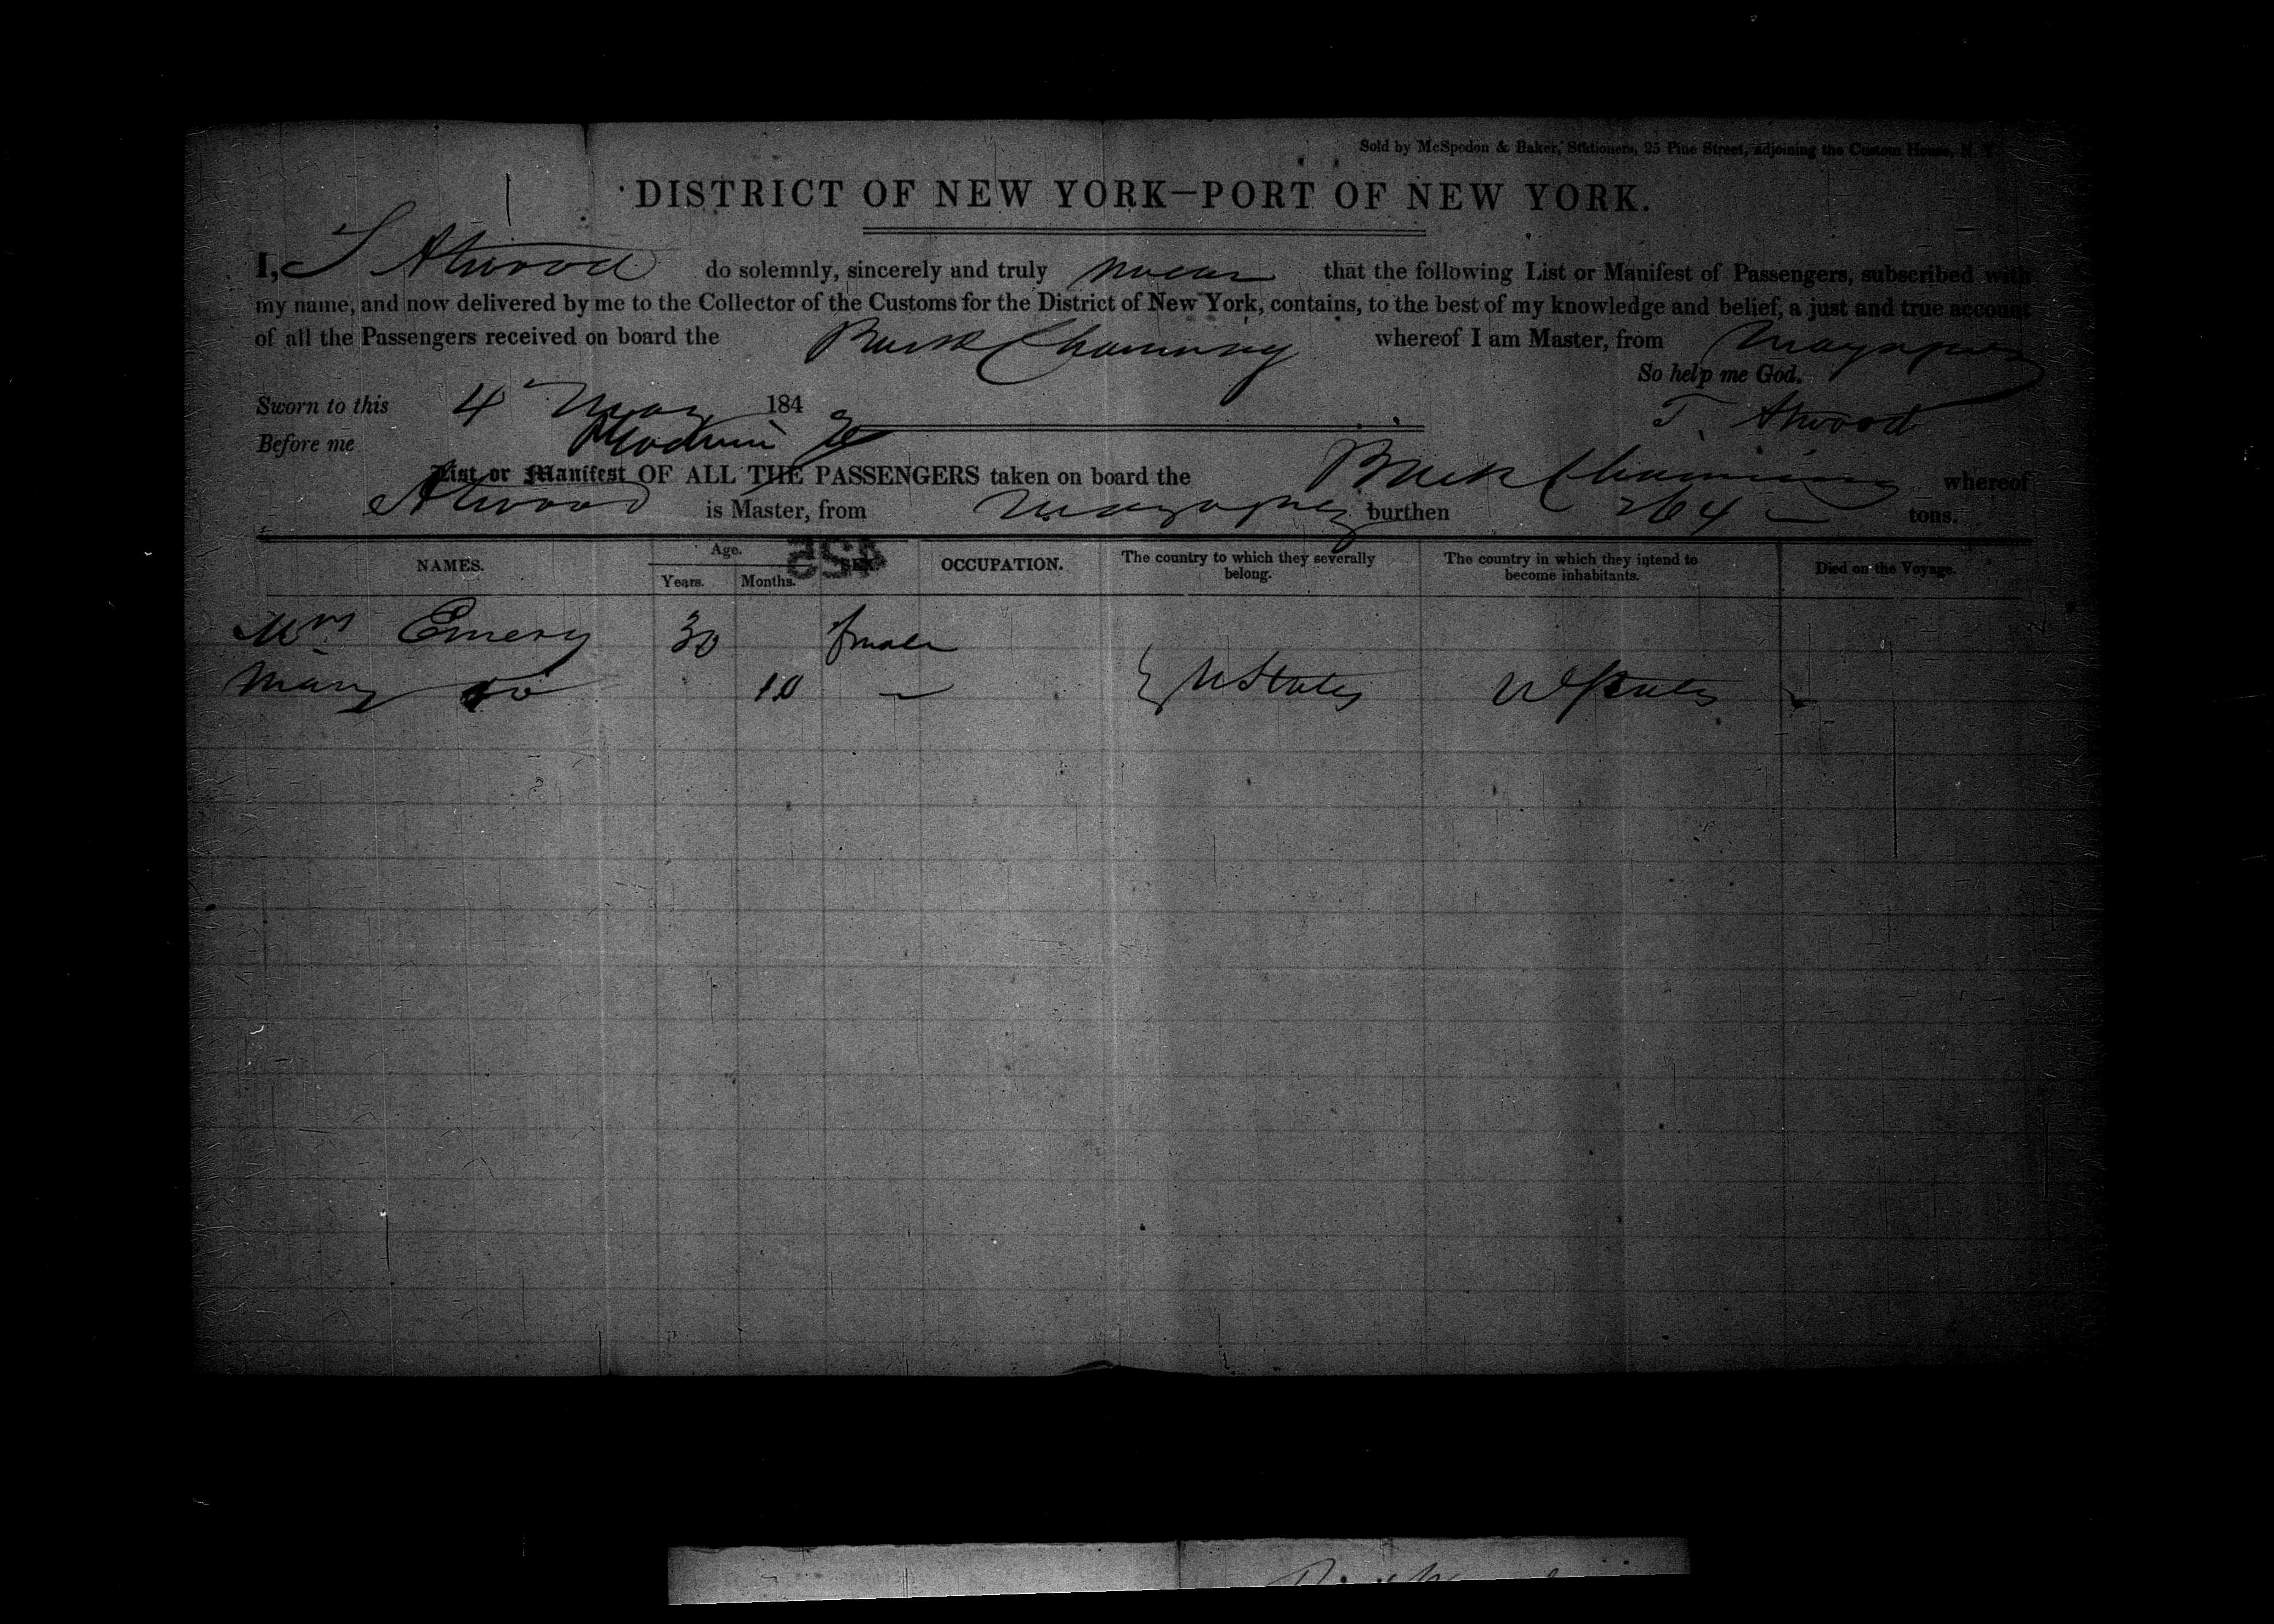 Sold by McSpedon & Baker, Stationers, 25 Pine Street, adjoining the Custom House, N. Y.
DISTRICT OF NEW YORK—PORT OF NEW YORK.
I, T Atwood do solemnly, sincerely and truly swear that the following List or Manifest of Passengers, subscribed with
my name, and now delivered by me to the Collector of the Customs for the District of New York, contains, to the best of my knowledge and belief, a just and true account
of all the Passengers received on board the Bark Channing whereof I am Master, from Mayaguez
So help me God.
Sworn to this 4 May 184
T. Atwood
Before me
List or Manifest OF ALL THE PASSENGERS taken on board the Bark Channing whereof
Atwood is Master, from Mayaguez burthen 264 tons.
425
NAMES. Age. Years. Months. SEX. OCCUPATION. The country to which they severally belong. The country in which they intend to become inhabitants. Died on the Voyage.
Mrs Emery 30 female
Mary do 10 — } U States U States